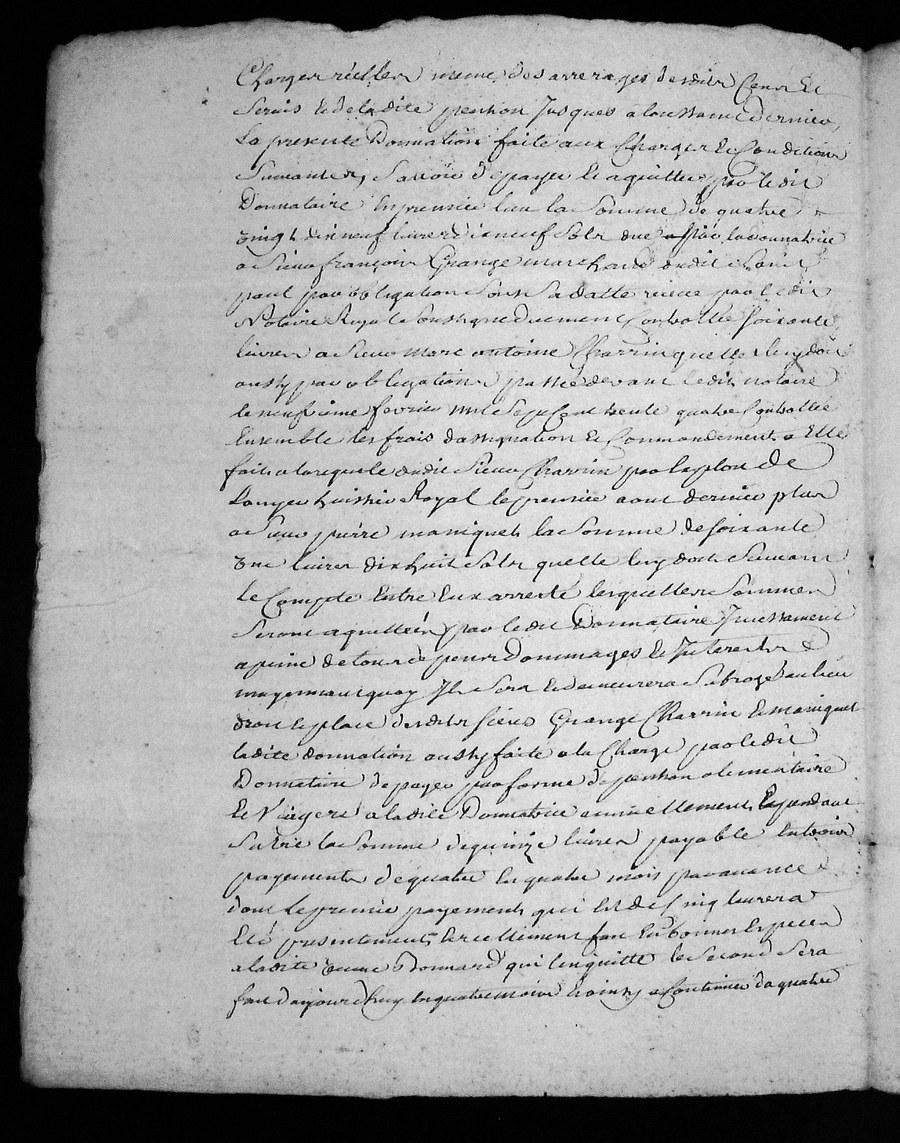 Charges réelles meme des arrerages desdits Cens et
Servis et de ladite pension Jusques a la toussaint derniere,
La presente Donnation faite aux Charges et Conditions
Suivantes, Savoir de payer et aquitter par ledit
Donnataire En premier lieu la Somme de quatre
vingt dix neuf livres dix neuf Sols due par la donnatrice
a Sieur françois Grange marchand dudit Saint
paul par obligation Sous Sa datte reçue par ledit
Notaire Royal Soussigné duement Controllé Soixante
livres a Sieur marc antoine Charrin quelle luy doit
aussy par obligation passée devant ledit notaire
le neufvieme fevrier mil Sept Cent trente quatre Controllée
Ensemble les frais d'assignation et Commandement a Elle
fait a la requete dudit Sieur Charrin par Exploit de
huissier Royal le premier aout dernier plus
a Sieur pierre maniquet la Somme de Soixante
une livres dix huit Sols quelle luy doit Suivant
le Compte Entre Eux arresté lesquelles Sommes
Seront aquittées par ledit Donnataire Incessament
a peine de tous depens Dommages et Interests
moyennant quoy Il Sera et demeurera Subrogé au lieu
droit et place desdits Sieurs Grange Charrin et maniquet
ladite donnation aussy faite a la Charge par ledit
Donnataire de payer par forme de pension alimentaire
et Viagere a ladite Donnatrice annuellement Et pendant
Sa vie la Somme de quinze livres payable En trois
payements de quatre En quatre mois par avance
dont le premier payement qui Est de Cinq livres a
Eté presentement et reellement fait En bonnes Especes
a ladite qui l'en quitte le Second Sera
fait d'aujourd'huy En quatre mois a Continuer de quatre